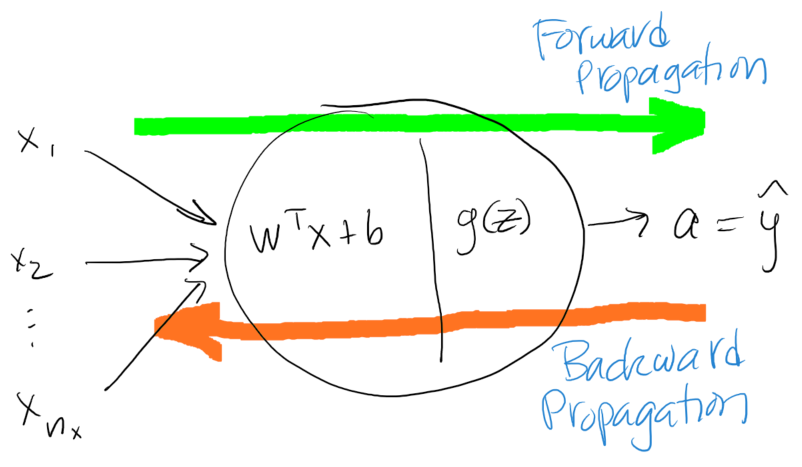 Forward
Propagation
x₁
x₂
⋮
xₙₓ
wᵀx+b
g(z)
a = ŷ
Backward
Propagation